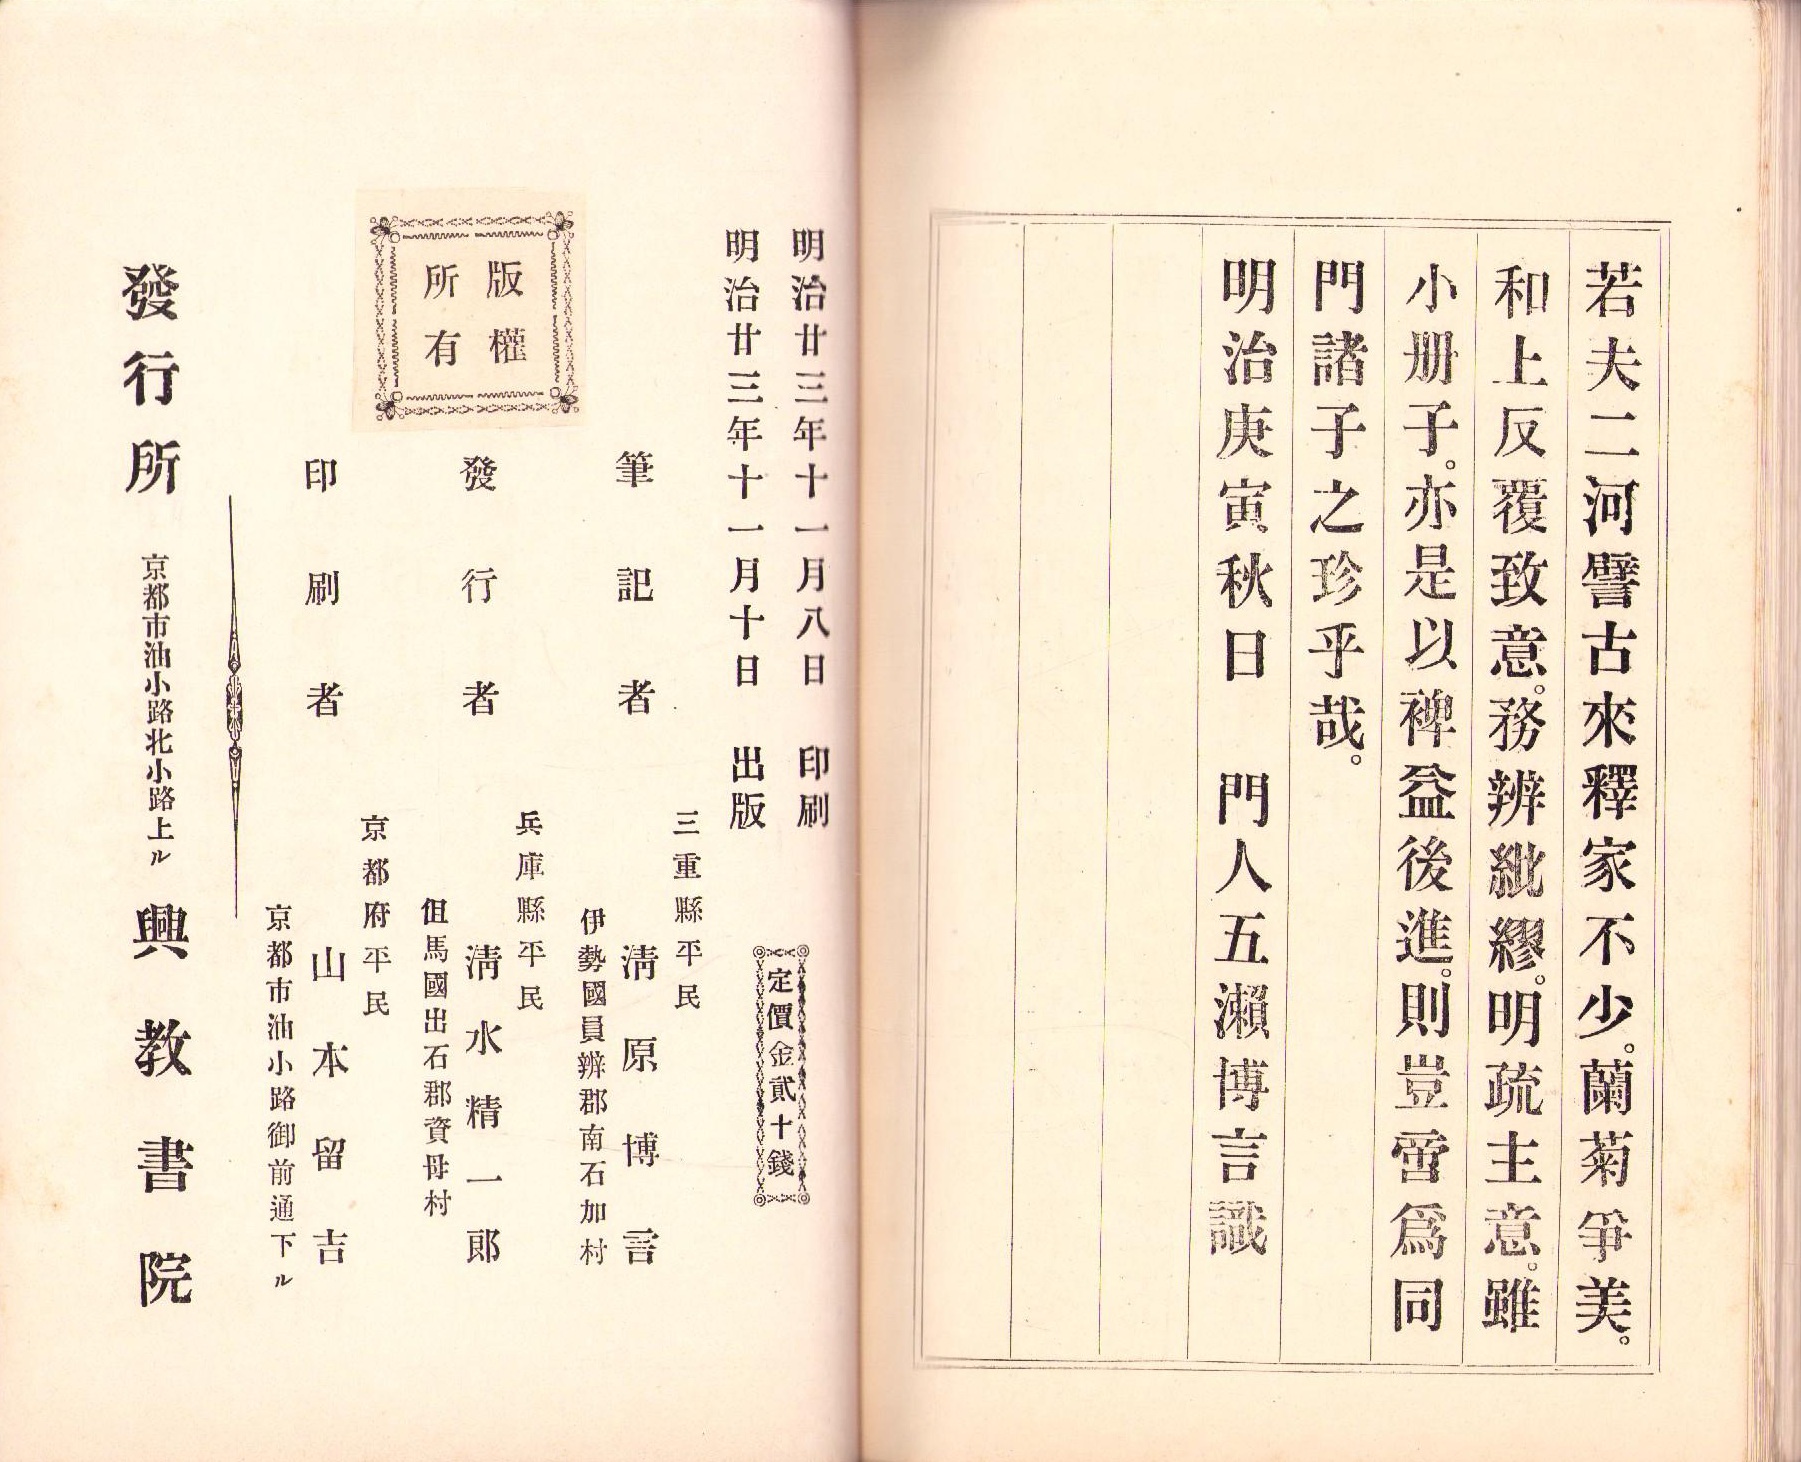 若夫二河譬古來釋家不少。蘭菊爭美。
和上反覆致意。務辨紕繆。明疏主意。雖
小册子。亦是以裨益後進。則豈啻爲同
門諸子之珍乎哉。
明治庚寅秋日　門人五瀨博言識
明治廿三年十一月八日　印刷
明治廿三年十一月十日　出版
定價金貳十錢
版權
所有
三重縣平民
筆記者　淸原博言
伊勢國員辨郡南石加村
兵庫縣平民
發行者　淸水精一郞
但馬國出石郡資母村
京都府平民
印刷者　山本留吉
京都市油小路御前通下ル
發行所　京都市油小路北小路上ル　興教書院